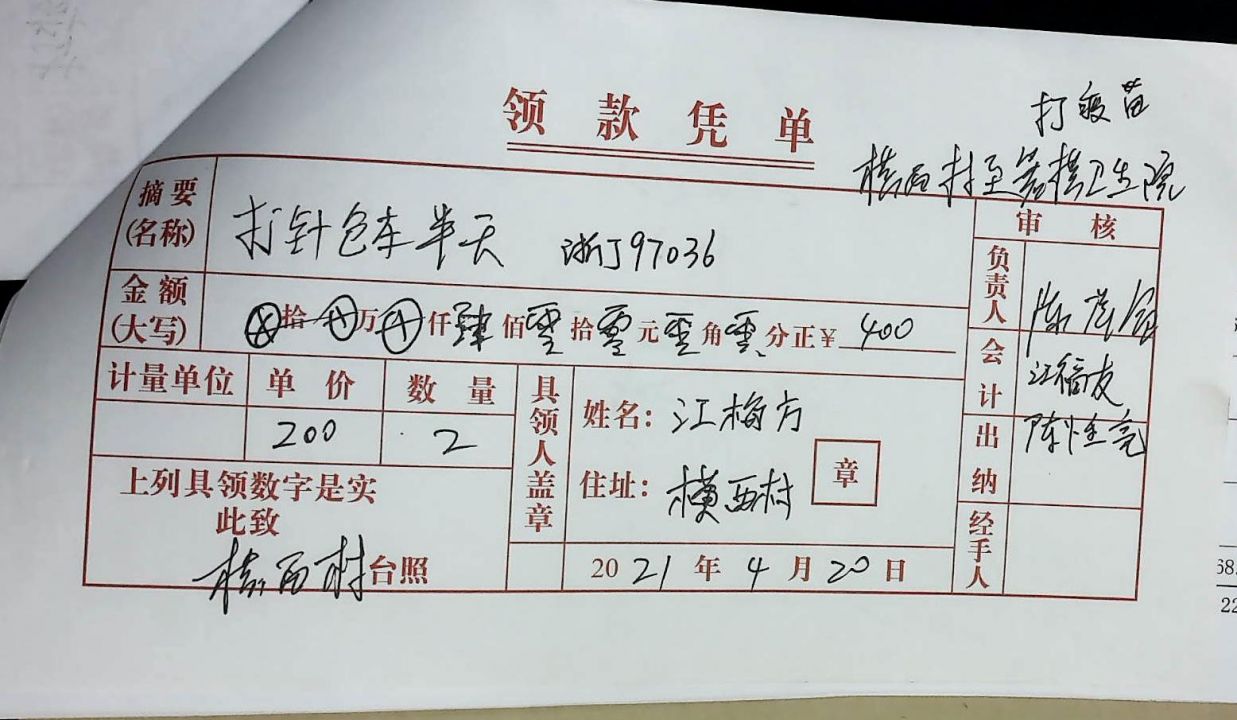 领款凭单
打疫苗
横西村至 横卫生院
摘要(名称) 打针包车半天 浙J97036
审核
金额(大写) ⊗拾⊗万⊗仟肆佰零拾零元零角零分正¥400
负责人 陈
计量单位 单价 数量
200 2
会计 江福友
出纳 陈 亮
经手人
具领人盖章
姓名:江梅方
住址:横西村 章
上列具领数字是实
此致
横西村台照
2021年4月20日
68.
22